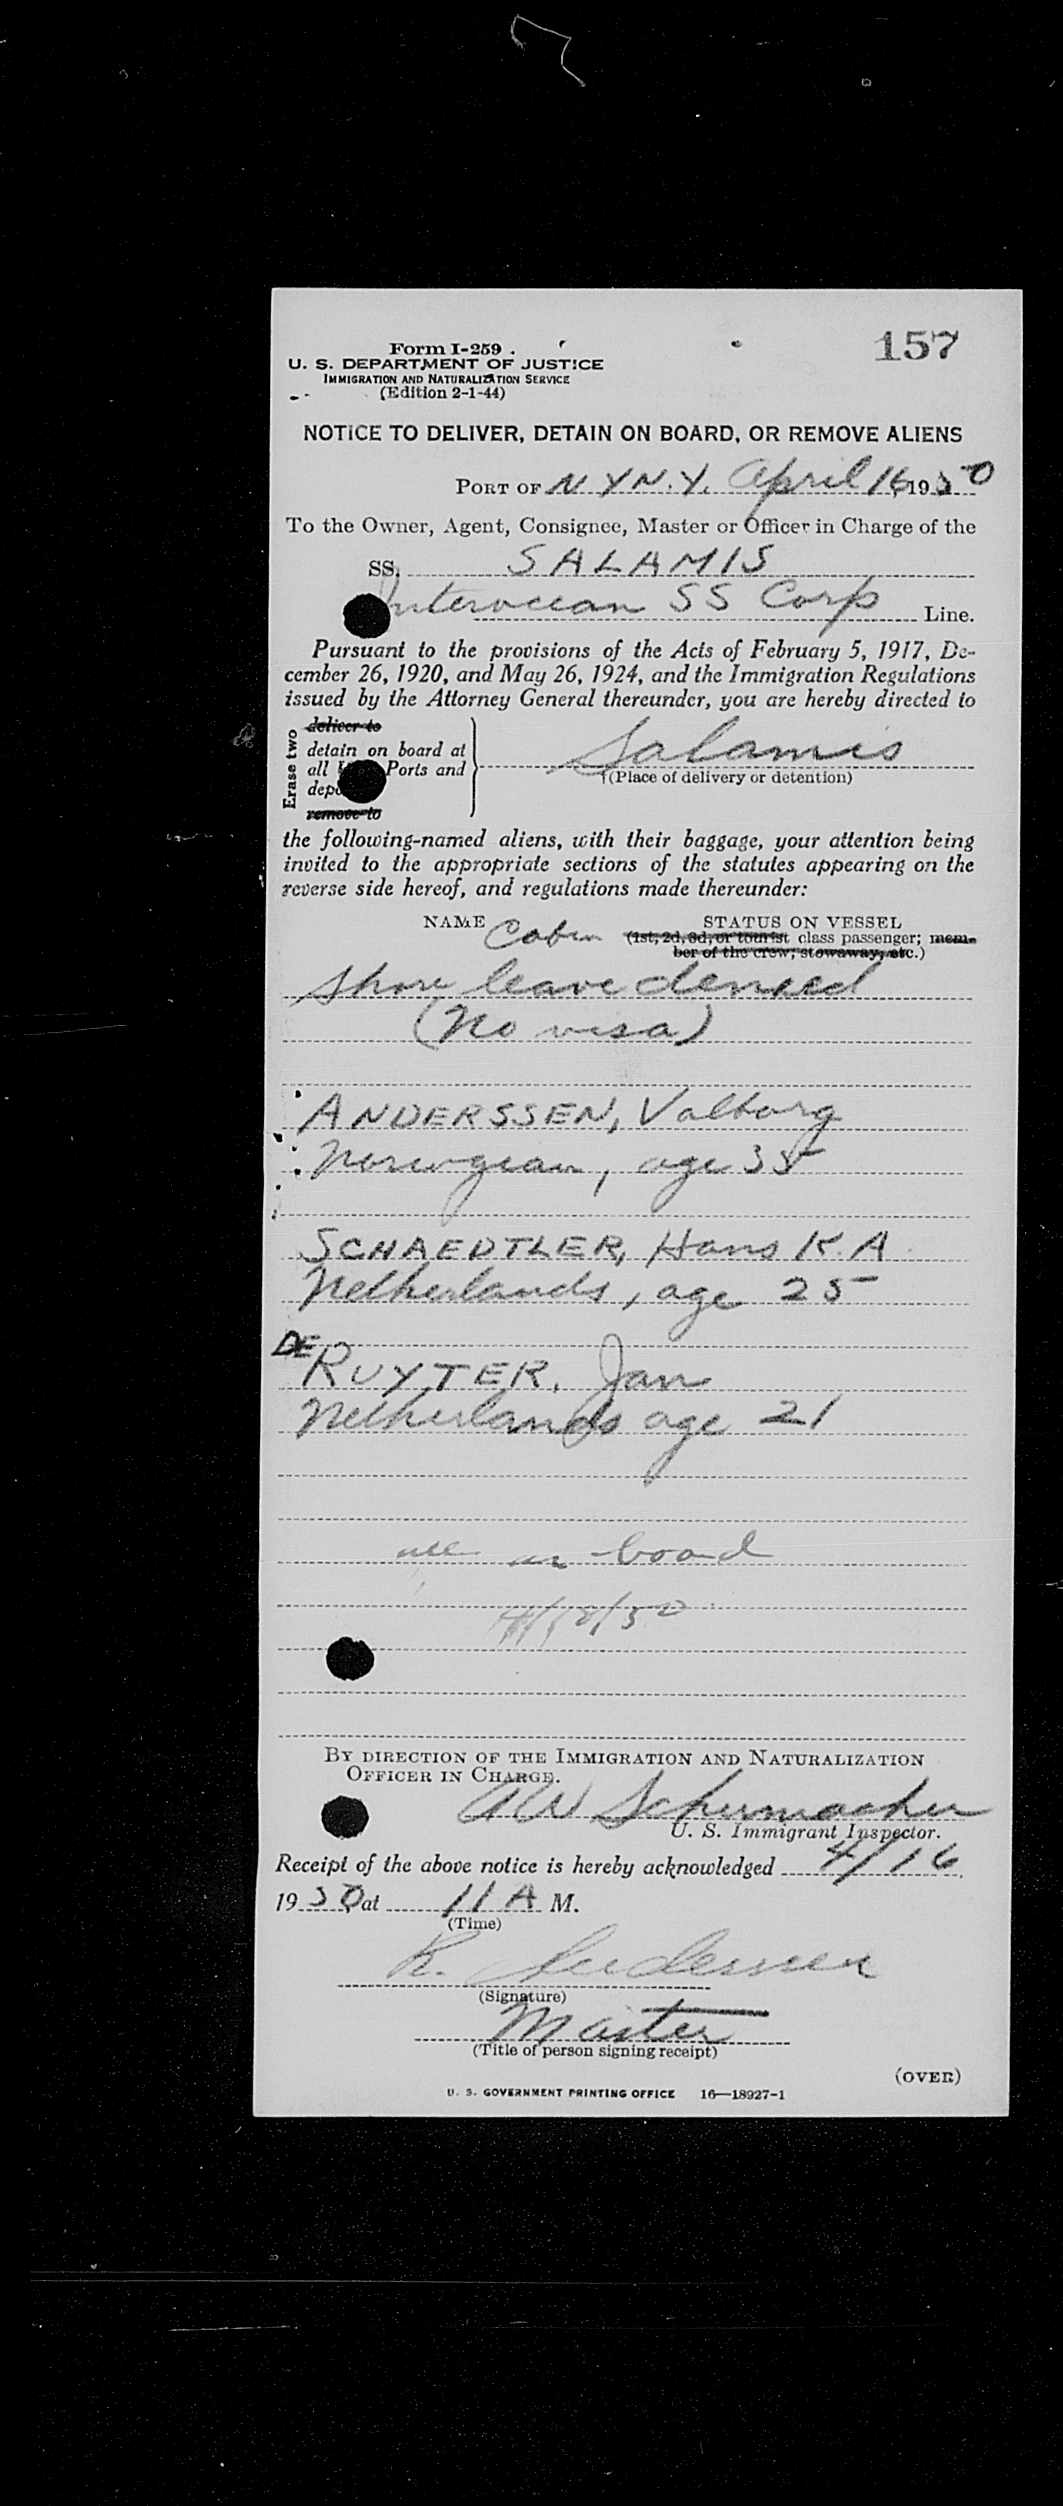 157
Form I-259
U. S. DEPARTMENT OF JUSTICE
IMMIGRATION AND NATURALIZATION SERVICE
(Edition 2-1-44)
NOTICE TO DELIVER, DETAIN ON BOARD, OR REMOVE ALIENS
PORT OF N Y N.Y. April 16, 1950
To the Owner, Agent, Consignee, Master or Officer in Charge of the
SS. SALAMIS
Interocean SS Corp Line.
Pursuant to the provisions of the Acts of February 5, 1917, De-
cember 26, 1920, and May 26, 1924, and the Immigration Regulations
issued by the Attorney General thereunder, you are hereby directed to
Erase two
deliver to
detain on board at
all Ports and
remove to
Salamis
(Place of delivery or detention)
the following-named aliens, with their baggage, your attention being
invited to the appropriate sections of the statutes appearing on the
reverse side hereof, and regulations made thereunder:
NAME Cabin STATUS ON VESSEL
(1st, 2d, 3d, or tourist class passenger; mem-
ber of the crew; stowaway, etc.)
Shore leave denied
(No visa)
ANDERSSEN, Valborg
Norwegian, age 35
SCHAEDTLER, Hans K. A
Netherlands, age 25
DE RUYTER, Jan
Netherlands age 21
all on board
4/18/50
BY DIRECTION OF THE IMMIGRATION AND NATURALIZATION
OFFICER IN CHARGE.
Schumacher
U. S. Immigrant Inspector.
Receipt of the above notice is hereby acknowledged 4/16,
1950 at 11 A M.
(Time)
R.
(Signature)
Master
(Title of person signing receipt)
(OVER)
U. S. GOVERNMENT PRINTING OFFICE 16—18927-1